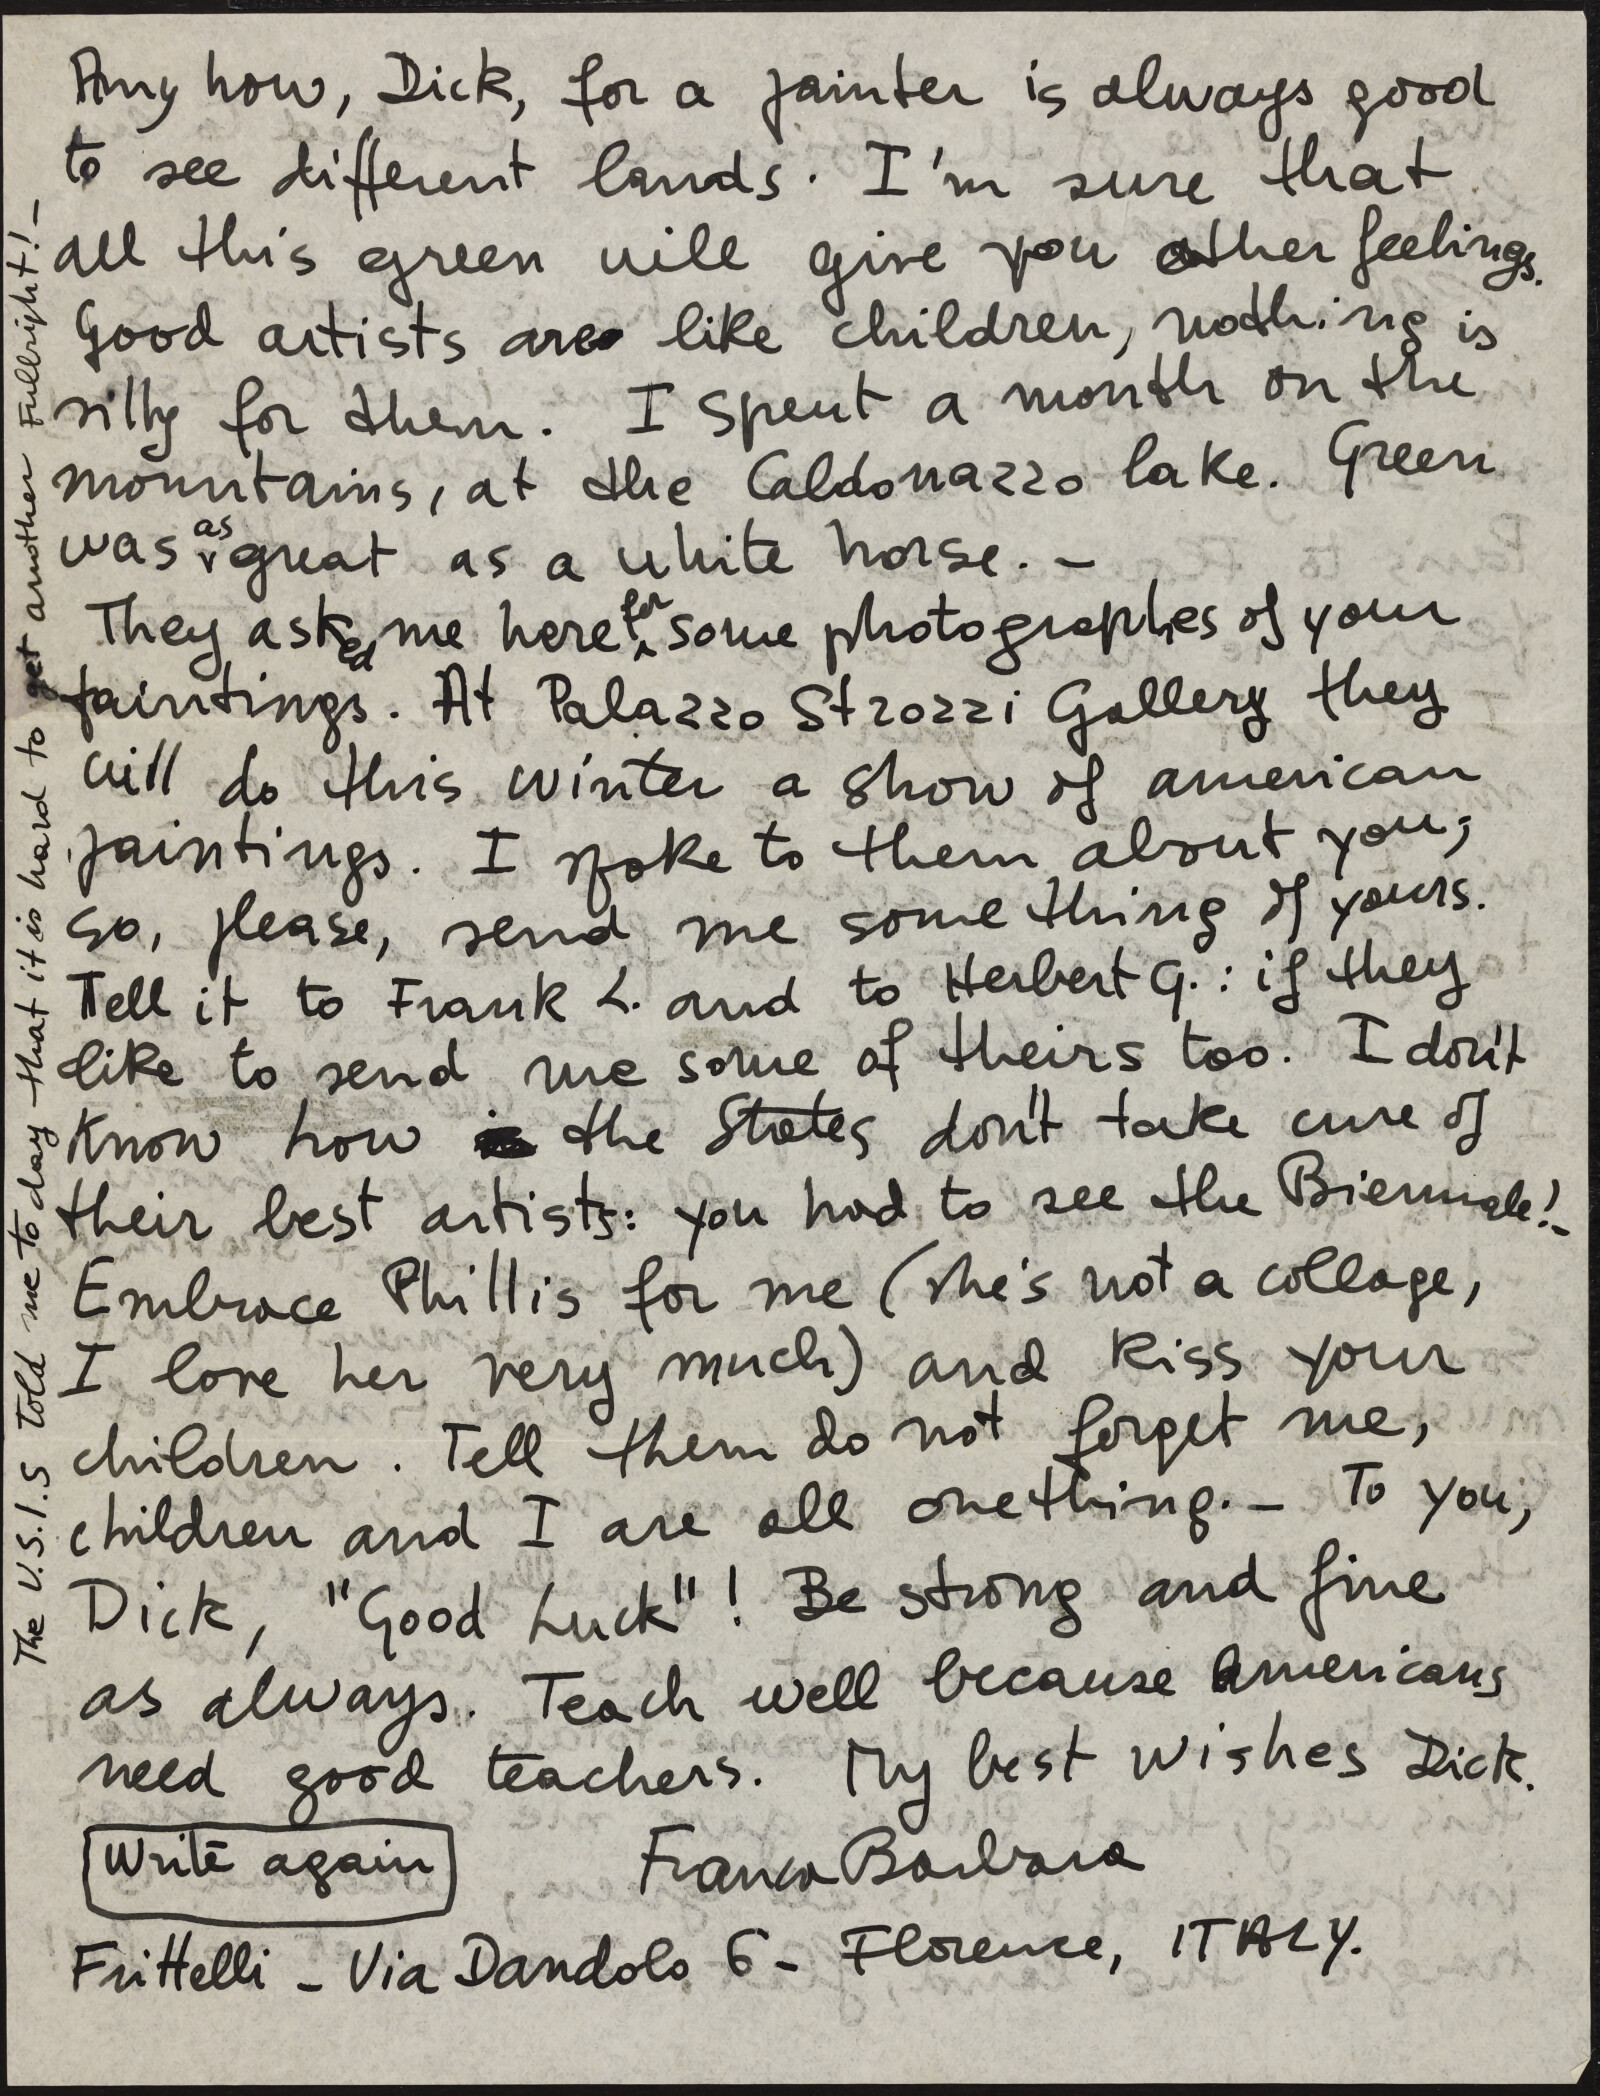 Any how, Dick, for a painter is always good
to see different lands. I'm sure that
all this green will give you other feelings.
Good artists are like children, nothing is
silly for them. I spent a month on the
mountains, at the Caldonazzo lake. Green
was as great as a white horse. –
They asked me here for some photographes of your
paintings. At Palazzo Strozzi Gallery they
will do this winter a show of american
paintings. I spoke to them about you;
so, please, send me some thing of yours.
Tell it to Frank L. and to Herbert G.: if they
like to send me some of theirs too. I don't
Know how the States don't take cure of
their best artists: you had to see the Biennale! –
Embrace Phillis for me (she's not a collage,
I love her very much) and Kiss your
children. Tell them do not forget me,
children and I are all one thing. – To you,
Dick, "Good Luck"! Be strong and fine
as always. Teach well because Americans
need good teachers. My best wishes Dick.
Write again
Franca Barbara
Frittelli – Via Dandolo 6 – Florence, ITALY.
The U.S.I.S told me to day that it is hard to get another Fullright! –